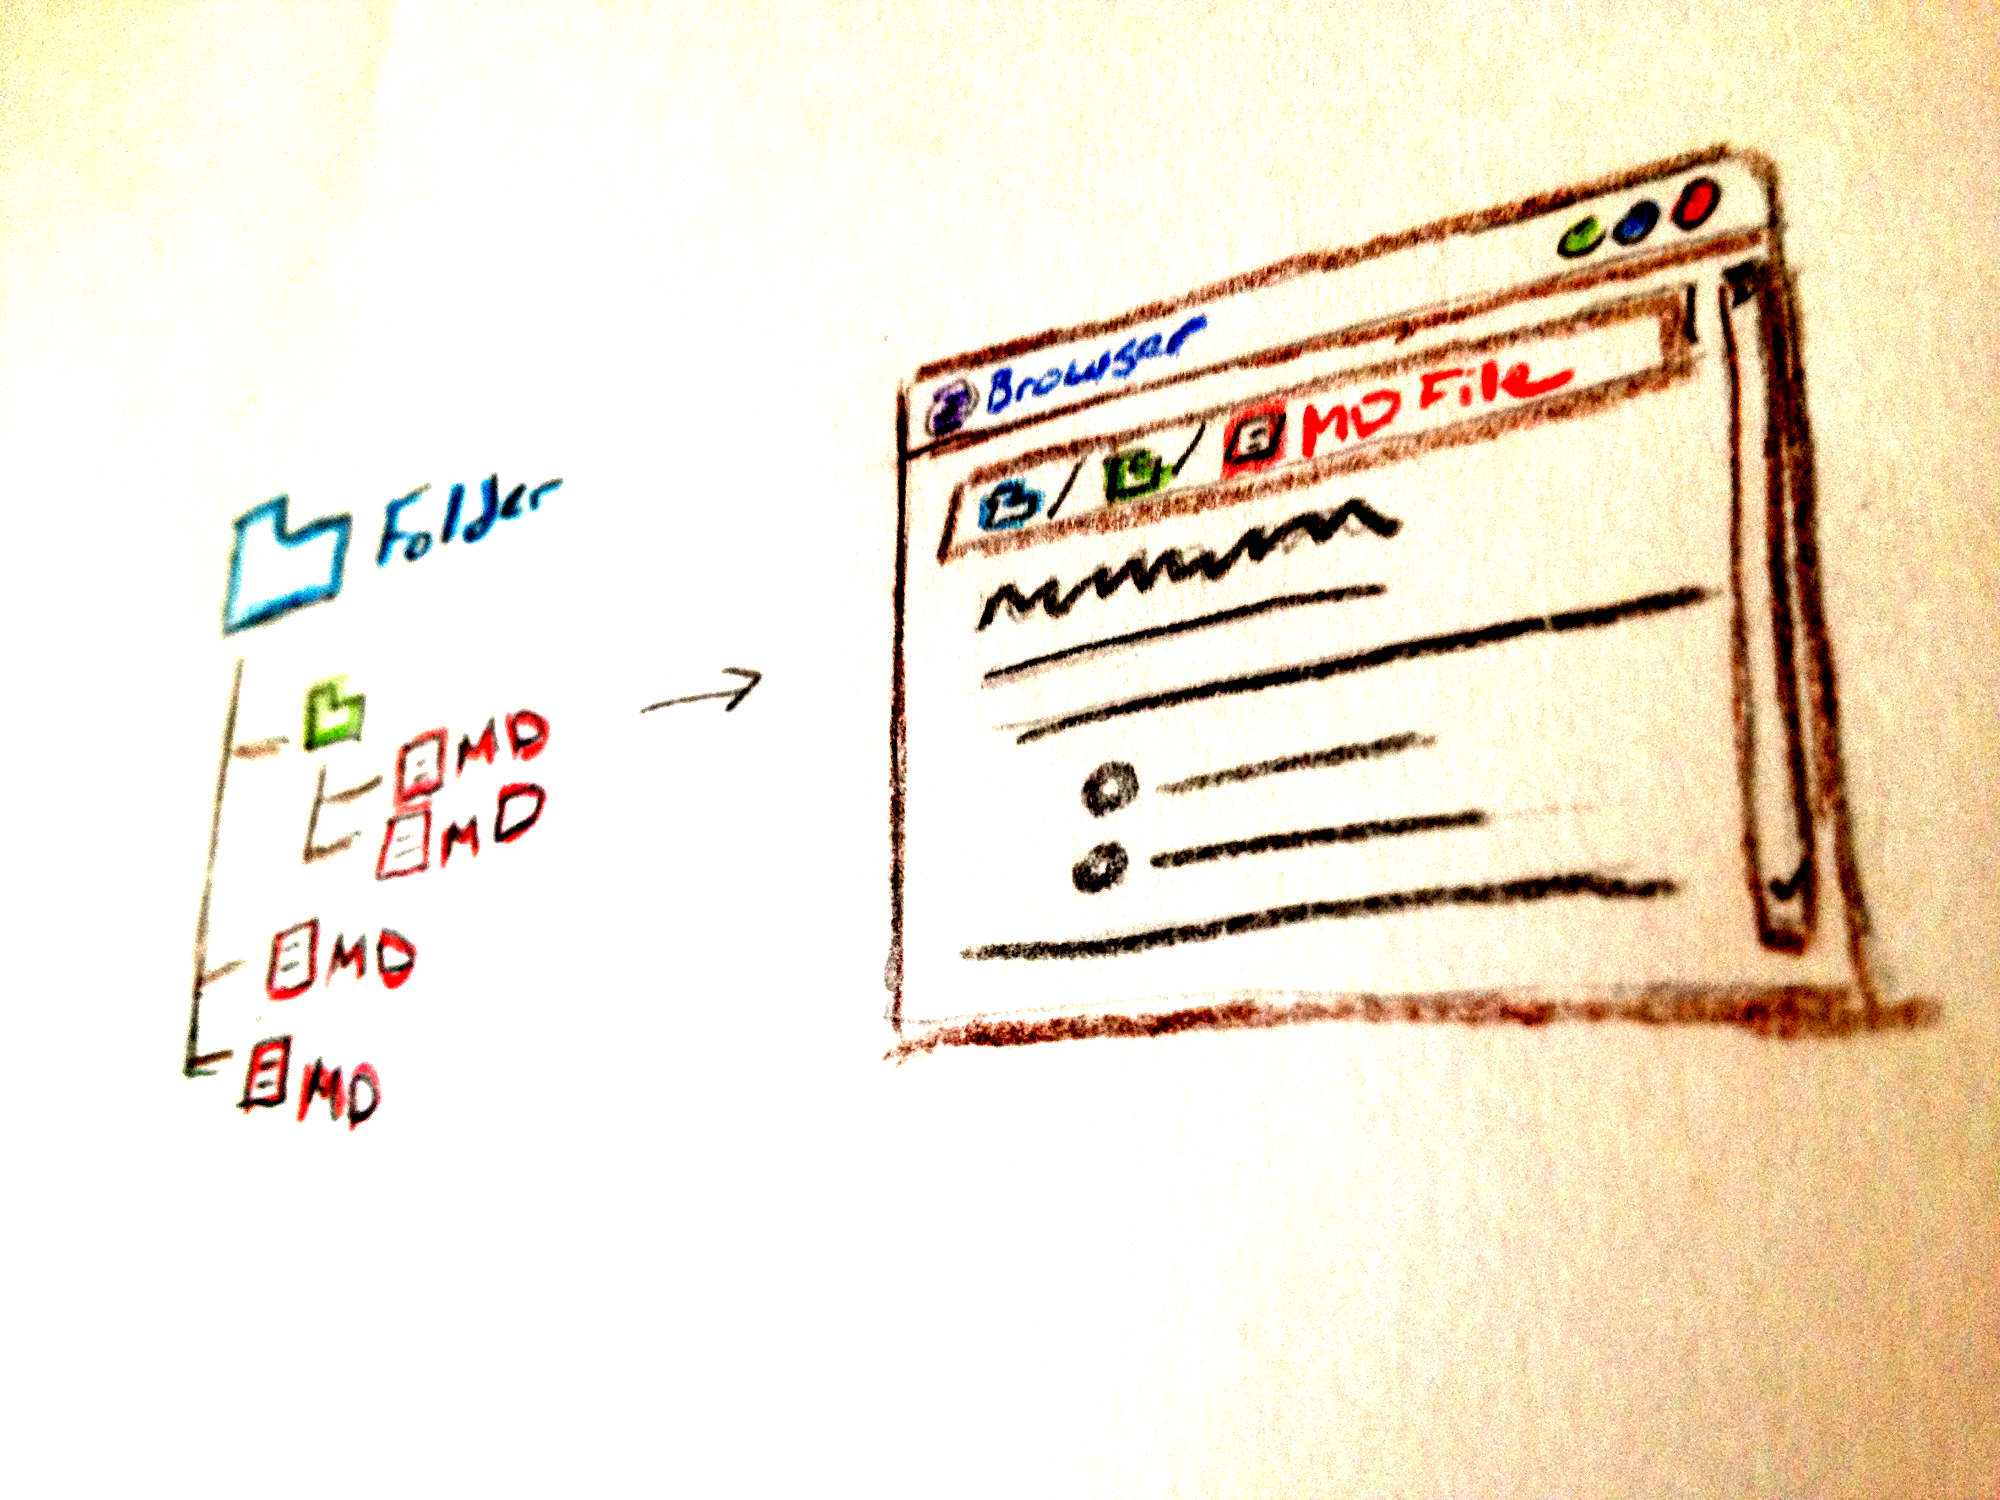 Folder
MD
MD
MD
MD
Browser
/ / MD File